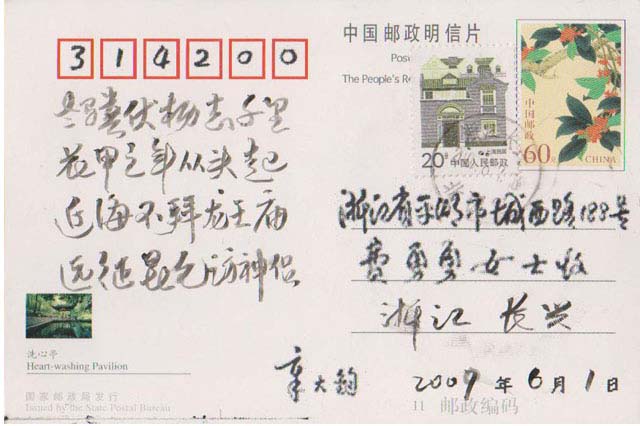 314200
中国邮政明信片
Post
The People's Re
老骥伏枥志千里
花甲之年从头起
近海不拜龙王庙
远征昆仑访神侣
20分
中国人民邮政
中国邮政
60分
CHINA
浙江省平湖市城西路188号
费勇勇女士收
浙江 长兴
洗心亭
Heart-washing Pavilion
章大钧
2009年6月1日
国家邮政局发行
Issued by the State Postal Bureau
11 邮政编码